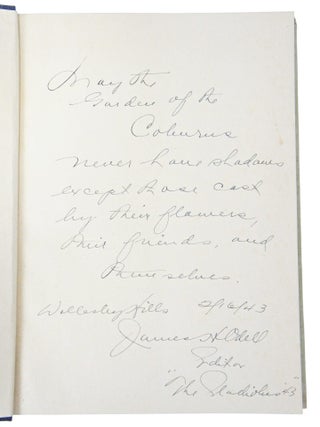 May the
Garden of the
Coburns
never have shadows
except those cast
by their flowers,
their friends, and
themselves.
Wellesley Hills 2/16/43
James H Odell
Editor
"The Gladiolus" 43